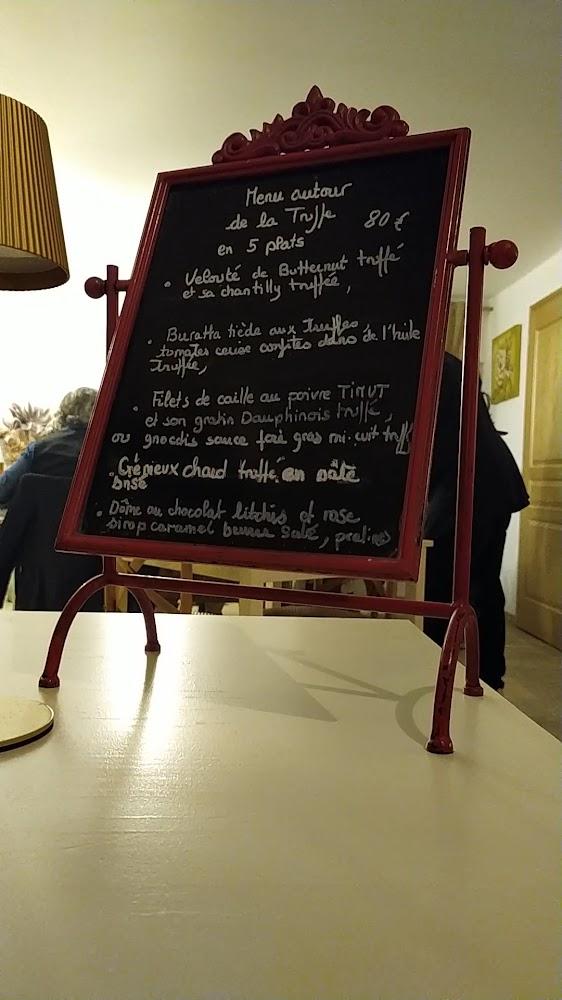 Menu autour
de la Truffe 80 €
en 5 plats
• Velouté de Butternut truffé
et sa chantilly truffée,
• Buratta tiède aux Truffes
tomates cerise confites dans de l'huile
Truffée,
• Filets de caille au poivre TIMUT
et son gratin Dauphinois truffé,
ou gnocchis sauce foie gras mi-cuit truffé
• Crémieux chaud truffé en pâte
brisé
• Dôme au chocolat litchis et rose
sirop caramel beurre salé, pralines